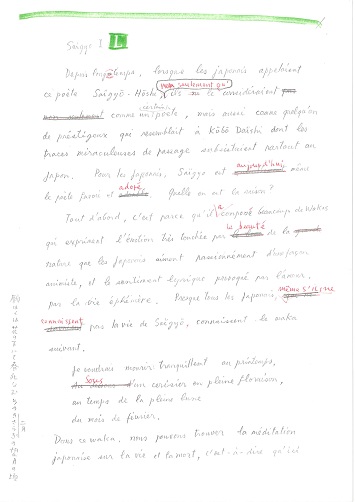 Saigyo I
Depuis longtemps, lorsque les japonais appelaient
ce poète Saïgyô-Hôshi, non seulement qu' ils le considéraient
comme un certain poète, mais aussi comme quelqu'un
de prestigieux qui ressemblait à Kôbô Daïshi dont les
traces miraculeuses de passage subsistaient partout au
Japon. Pour les japonais, Saïgyo est aujourd'hui, même
le poète favori et adopté. Quelle en est la raison?
Tout d'abord, c'est parce qu'il a composé beaucoup de Wakas
qui expriment l'émotion très touchée par la beauté de la
nature que les Japonais aiment passionément d'une façon
animiste, et le sentiment lyrique provoqué par l'amour,
par la vie éphémère. Presque tous les Japonais, même s'il ne
connaissent pas la vie de Saïgyô, connaissent le waka
suivant.
Je voudrais mourir tranquillement au printemps,
Sous d'un cerisier en pleine floraison,
au temps de la pleine lune
du mois de février.
Dans ce waka, nous pouvons trouver la méditation
japonaise sur la vie et la mort, c'est-à-dire qu'ici